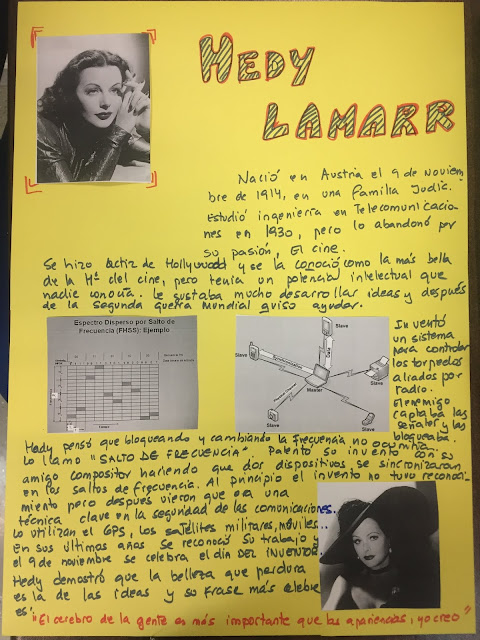 HEDY
LAMARR
Nació en Austria el 9 de noviem
bre de 1914, en una familia judía.
Estudió ingeniería en Telecomunicacio
nes en 1930, pero lo abandonó por
su pasión, El cine.
Se hizo actriz de Hollywood y se la conoció como la más bella
de la Hª del cine, pero tenía un potencial intelectual que
nadie conocía. Le gustaba mucho desarrollar ideas y después
de la Segunda guerra Mundial quiso ayudar.
Espectro Disperso por Salto de
Frecuencia (FHSS): Ejemplo
Slave
Slave
Slave
Slave
Slave
Master
Inventó
un sistema
para controlar
los torpedos
aliados por
radio.
El enemigo
captaba las
señales y las
bloqueaba.
Hedy pensó que bloqueando y cambiando la frecuencia no ocurriría.
Lo llamó "SALTO DE FRECUENCIA". Patentó su invento con su
amigo compositor haciendo que dos dispositivos se sincronizaran
en los saltos de frecuencia. Al principio el invento no tuvo reconoci-
miento pero después vieron que era una
técnica clave en la seguridad de las comunicaciones.
Lo utilizan el GPS, los satélites militares, móviles...
En sus últimos años se reconoció su trabajo y
el 9 de noviembre se celebra el día DEL INVENTOR.
Hedy demostró que la belleza que perdura
es la de las ideas y su frase más célebre
es:
"El cerebro de la gente es más importante que las apariencias, yo creo"